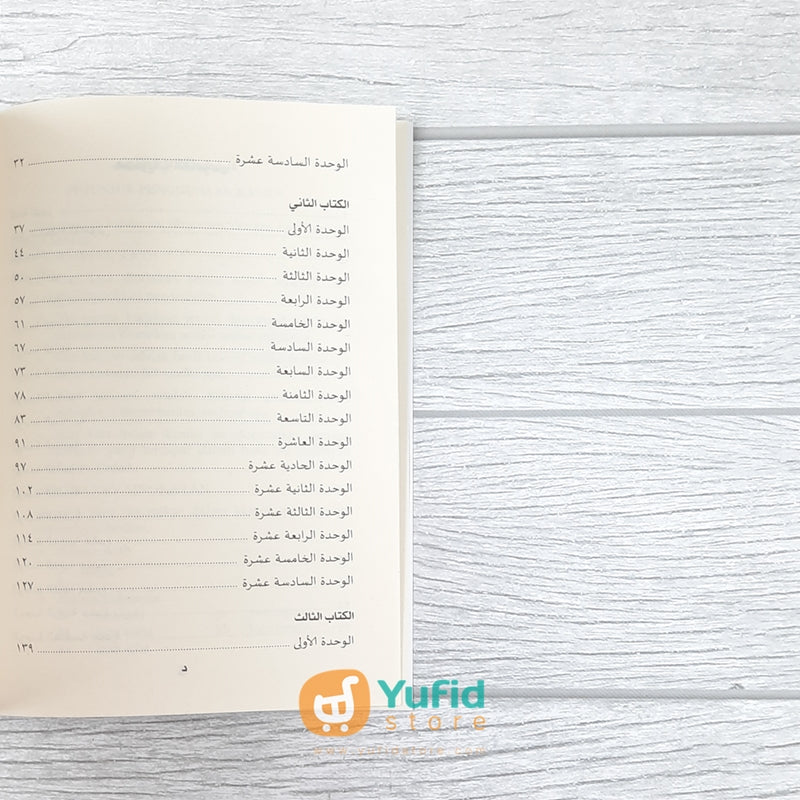 الوحدة السادسة عشرة ................ ٣٢
الكتاب الثاني
الوحدة الأولى ................ ٣٧
الوحدة الثانية ................ ٤٤
الوحدة الثالثة ................ ٥٠
الوحدة الرابعة ................ ٥٧
الوحدة الخامسة ................ ٦١
الوحدة السادسة ................ ٦٧
الوحدة السابعة ................ ٧٣
الوحدة الثامنة ................ ٧٨
الوحدة التاسعة ................ ٨٣
الوحدة العاشرة ................ ٩١
الوحدة الحادية عشرة ................ ٩٧
الوحدة الثانية عشرة ................ ١٠٢
الوحدة الثالثة عشرة ................ ١٠٨
الوحدة الرابعة عشرة ................ ١١٤
الوحدة الخامسة عشرة ................ ١٢٠
الوحدة السادسة عشرة ................ ١٢٧
الكتاب الثالث
الوحدة الأولى ................ ١٣٩
د
Yufid
store